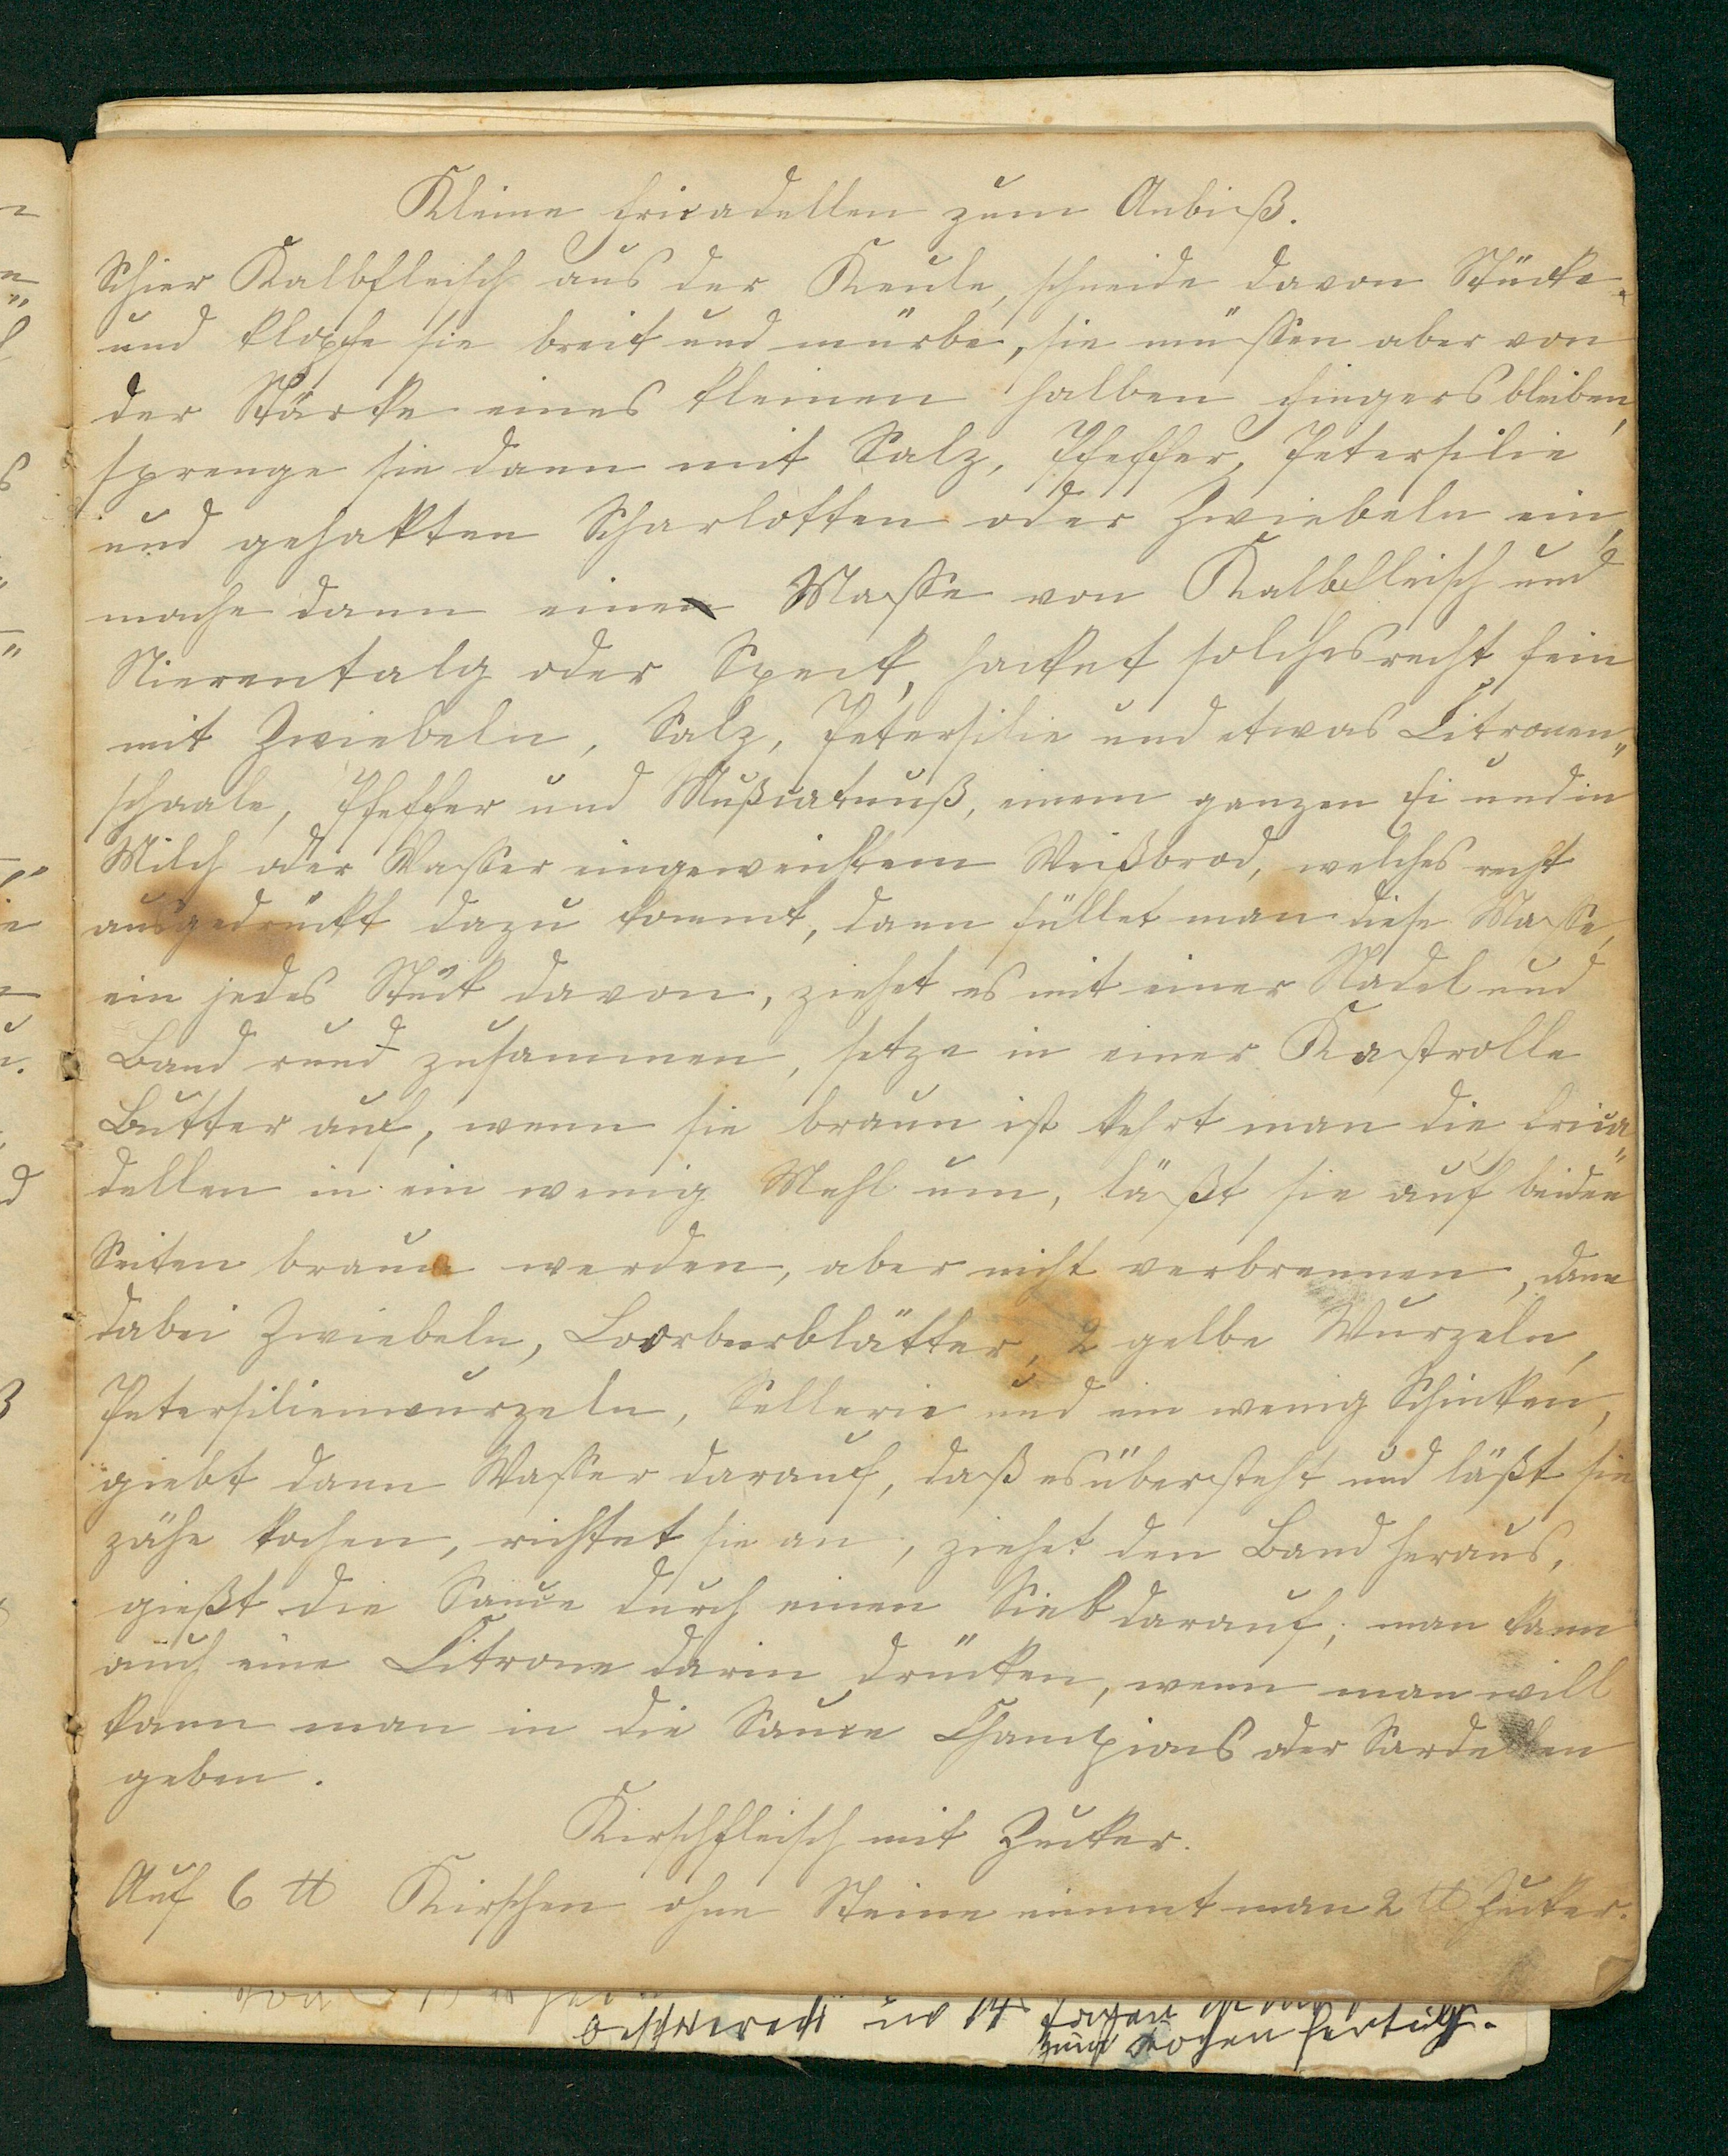 Kleine Fricadellen zum Anbiß.
Schier Kalbfleisch aus der Keule, schneide davon Stücke
und klopfe sie breit und mürbe, sie müssen aber von
der Stärke eines kleinen halben Fingers bleiben,
sprenge sie dann mit Salz, Pfeffer, Petersilie
und gehakten Scharlotten oder Zwiebeln ein,
mache dann eine Masse von Kalbfleisch und
Nierentalg oder Speck, hacket solches recht fein
mit Zwiebeln, Salz, Petersilie und etwas Citronen„
schaale, Pfeffer und Mußcatnuß, einem ganzen Ei und in
Milch oder Wasser eingeweichtem Weißbrod, welches recht
ausgedrückt dazu kommt, dann füllet man diese Masse,
ein jedes Stück davon, ziehet es mit einer Nadel und
Band rund zusammen, setze in einer Kastrolle
Butter auf, wenn sie braun ist kehrt man die Frica„
dellen in ein wenig Mehl um, läßt sie auf beiden
Seiten braun werden, aber nicht verbrennen, dann
dabei Zwiebeln, Loorbeerblätter, 2 gelbe Wurzeln,
Petersilienwurzeln, Sellerie und ein wenig Schinken,
giebt dann Wasser darauf, daß es übersteht und läßt sie
zähe kochen, richtet sie an, ziehet den Band heraus,
gießt die Sauce durch einen Sieb darauf; man kann
auch eine Citrone darin drücken, wenn man will
kann man in die Sauce Champions oder Sardellen
geben.
Kirschfleisch mit Zucker.
Auf 6 ℔ Kirschen ohne Steine nimmt man 2 ℔ Zucker.
beschwerdt in 14
zum kochen fertig.